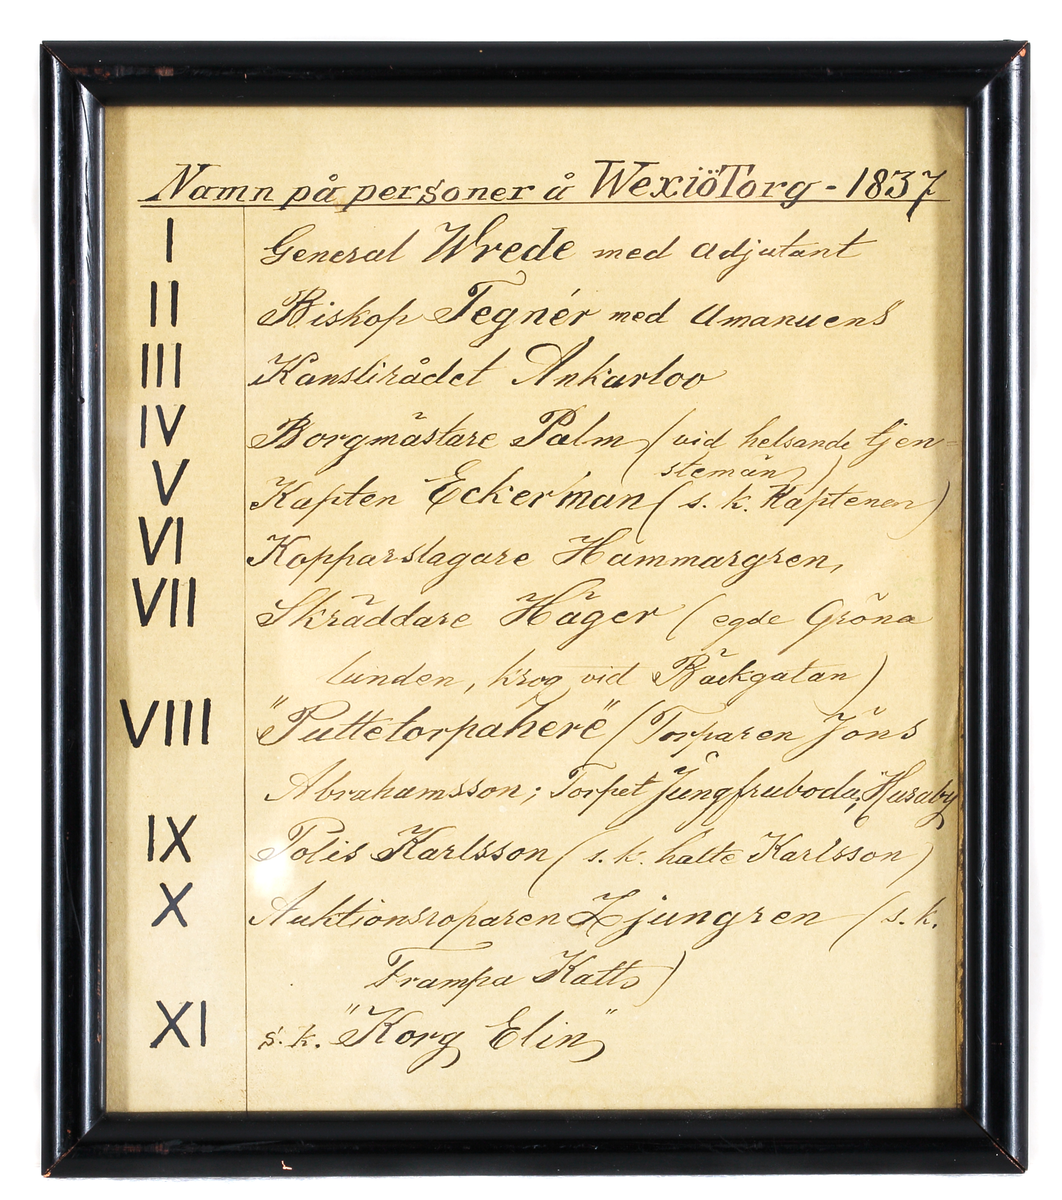 Namn på personer å Wexiö Torg - 1837
I General Wrede med adjutant
II Biskop Tegnér med Amanuens
III Kanslirådet Ankarloo
IV Borgmästare Palm (vid helsande tjen-
stemän)
V Kapten Eckerman (s. k. Kaptenen)
VI Kopparslagare Hammargren,
VII Skräddare Häger (egde Gröna
lunden, krog vid Bäckgatan)
VIII "Puttetorpaherė" (Torparen Jöns
Abrahamsson; Torpet Jungfruboda, Husaby
IX Polis Karlsson (s. k. halte Karlsson)
X Auktionsroparen Ljungren (s. k.
Trampa Katts)
XI s. k. "Korg Elin"